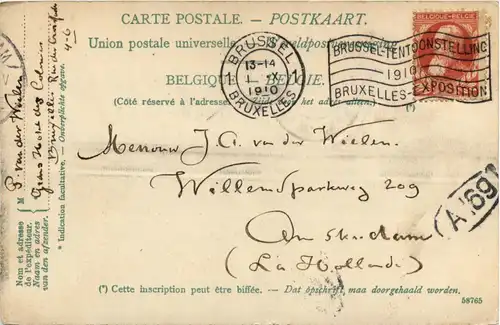 CARTE POSTALE. - POSTKAART.
Union postale universelle. Wereldpostvereeniging.
BELGIQUE - BELGIE.
(Côté réservé à l'adresse. Zijde voor het adres alleen.)
(*)
BRUSSEL 1
13-14
1 IX
1910
BRUXELLES 1
BRUSSEL-TENTOONSTELLING
1910
BRUXELLES-EXPOSITION
BELGIQUE-BELGIË
Messrouw J. A. van der Wielen.
Willemsparkweg 209
Amsterdam
(La Hollande)
A'69
(*) Cette inscription peut être biffée. — Dat opschrift maa doorgehaald worden.
58765
Nom et adresse de l'expéditeur.
Naam en adres van den afzender.
M P. van der Wielen
Grand Hotel des Colonies
Bruxelles
4-6
* Indication facultative. — Onverplichte opgave.